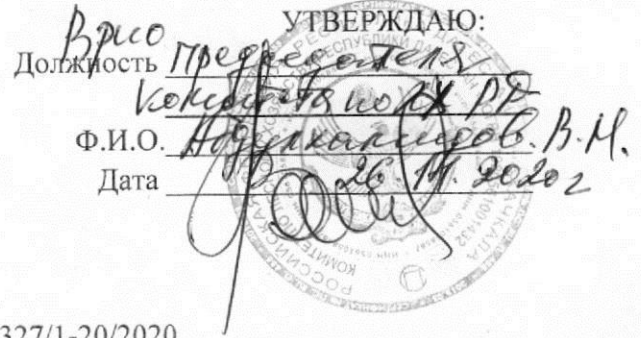 УТВЕРЖДАЮ:
Врио
Должность Председателя
Комитета по ЛХ РД
Ф.И.О. Абдулхамидов В.М.
Дата 26.11.2020г
РОССИЙСКАЯ
КОМИТЕТ ПО
327/1-20/2020